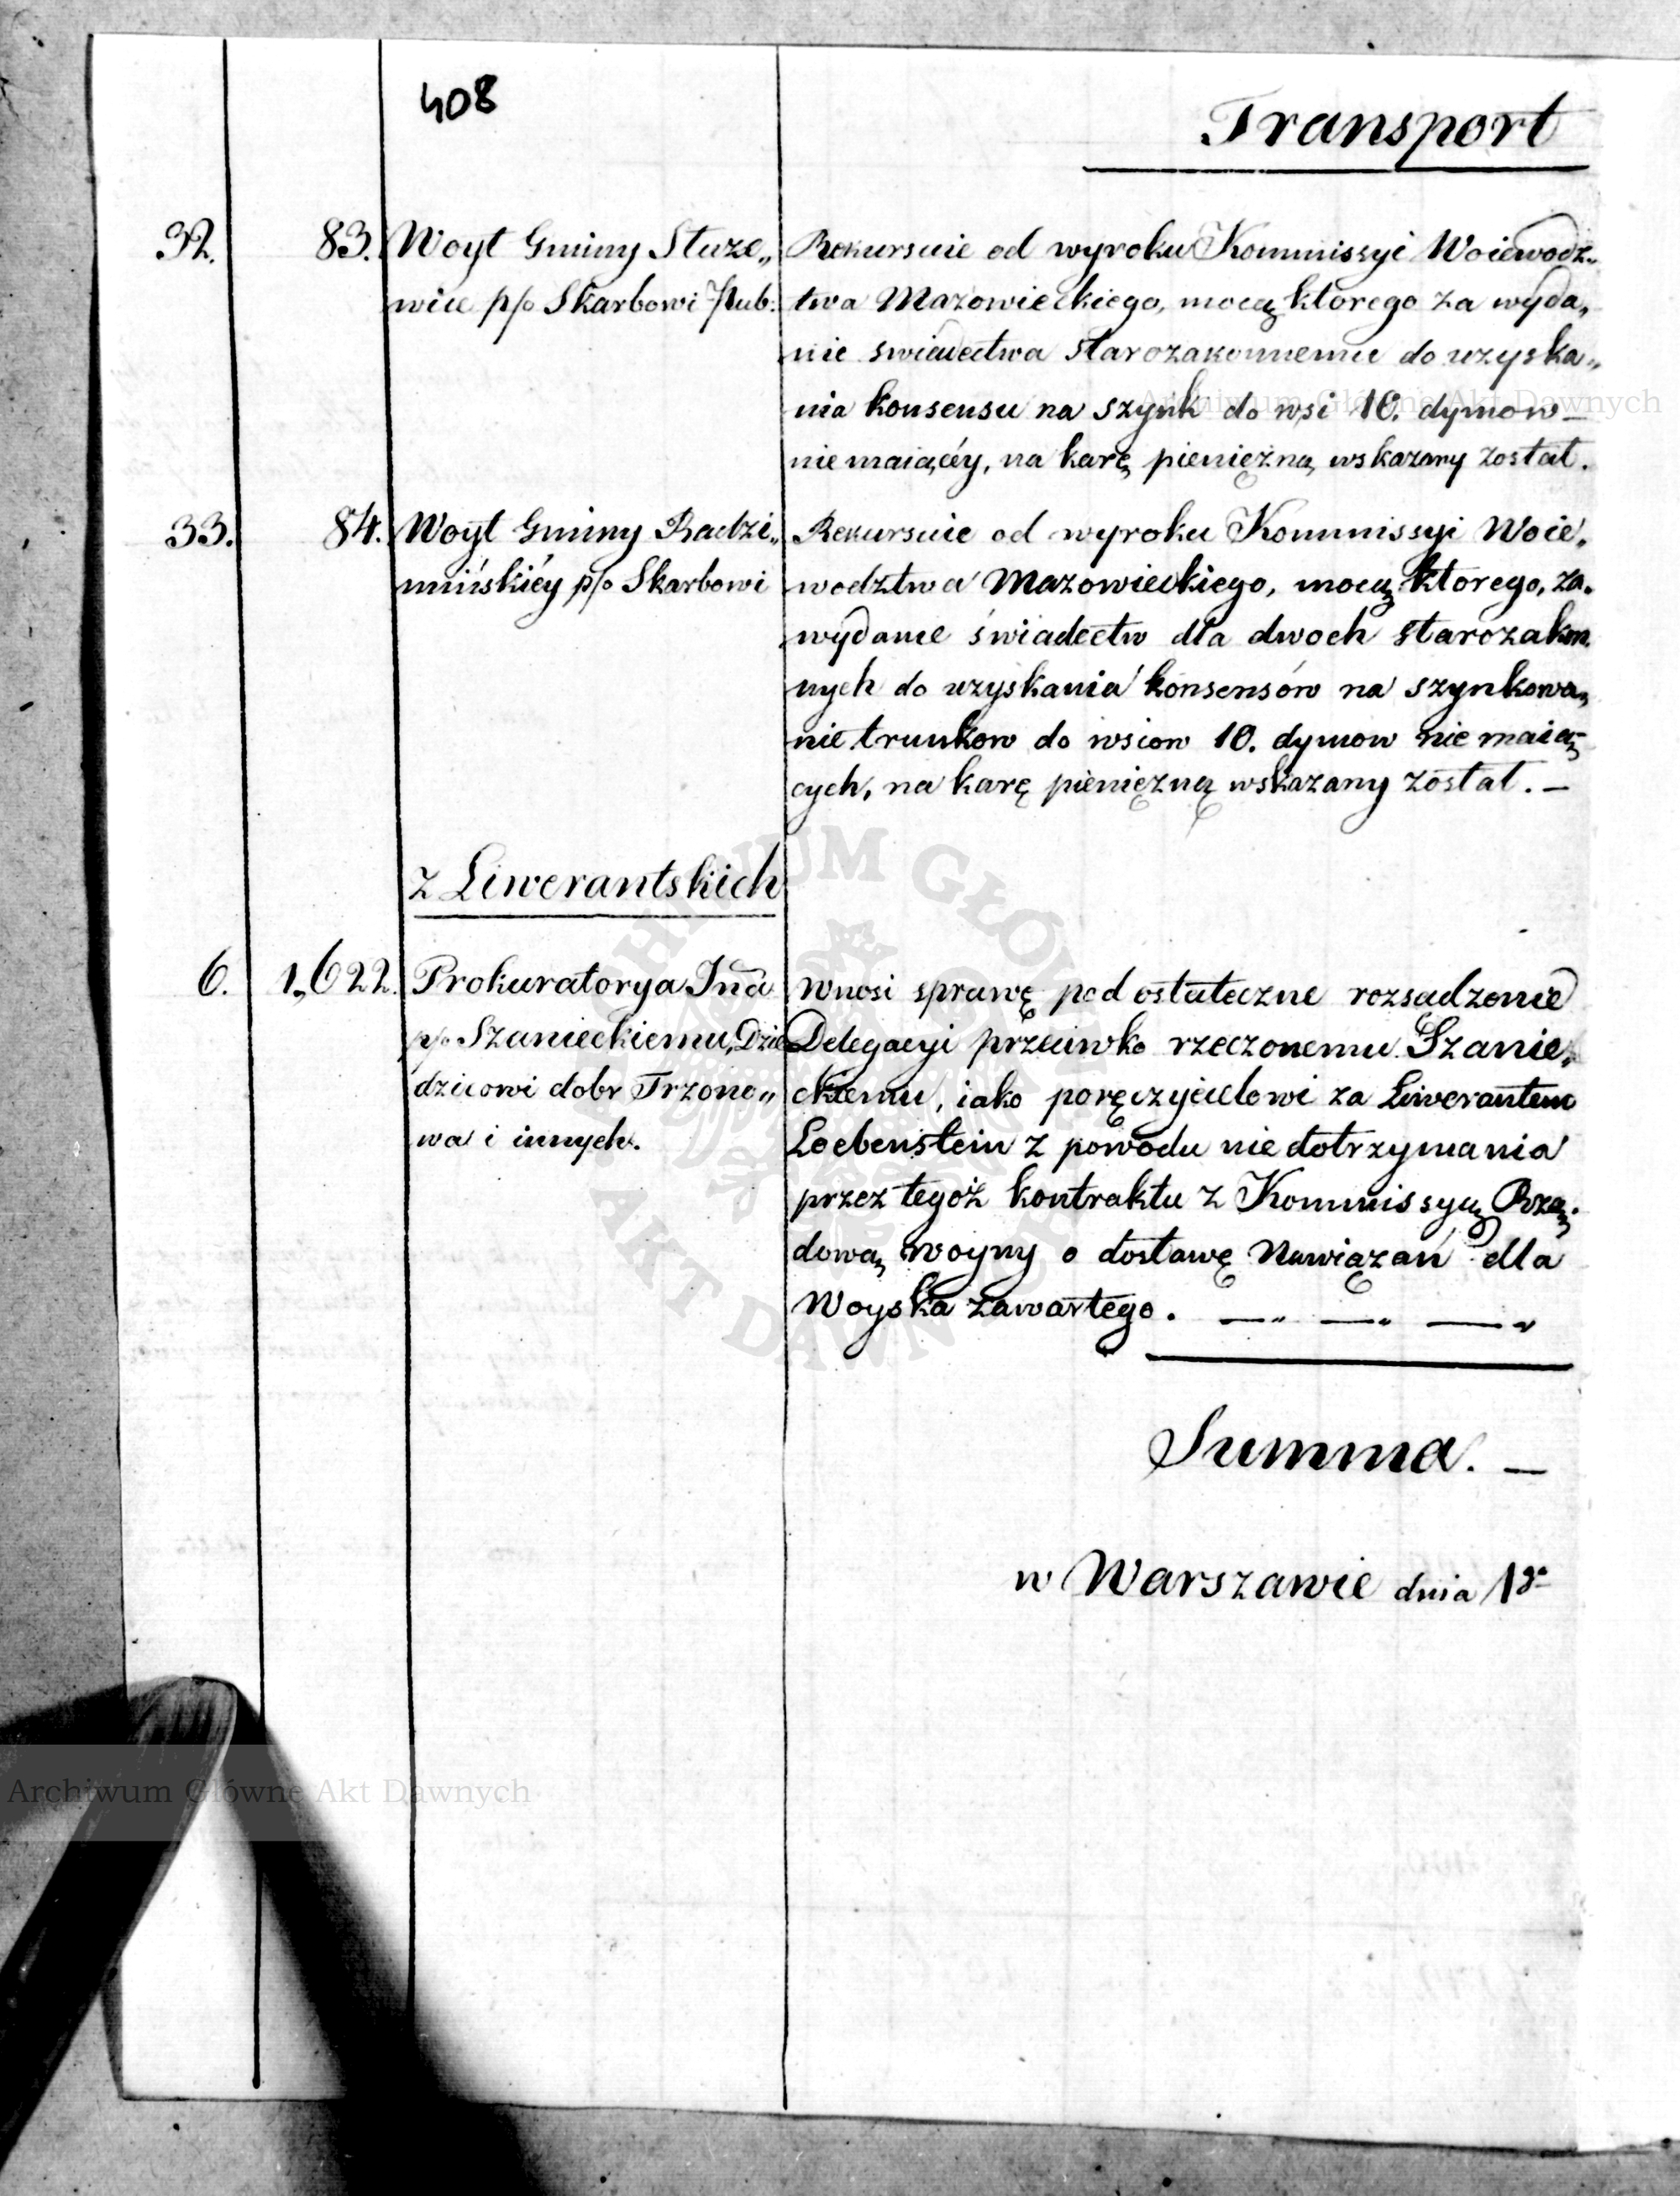 408
Transport
32. 83. Woyt Gminy Stuze„
wice p/o Skarbowi Pub:
Rekursuie od wyroku Kommissyi Woiewodz„
twa Mazowieckiego, mocą ktorego za wyda„
nie swiadectwa starozakonnemu do uzyska„
nia konsensu na szynk do wsi 10. dymow –
nie maiącéy, na karę pieniężną wskazany został.
33. 84. Woyt Gminy Radzi„
mińskiéy p/o Skarbowi
Rekursuie od wyroku Kommissyi Woie„
wodztwa Mazowieckiego, mocą ktorego, za„
wydanie świadectw dla dwoch starozakon„
nych do uzyskania konsensów na szynkowa„
nie trunkow do wsiow 10. dymow nie maią„
cych, na karę pieniężną wskazany został. –
z Liwerantskich
6. 1,622. Prokuratorya Jńa
p/o Szanieckiemu, Dzie
dzicowi dobr Trzono„
wa i innych.
Wnosi sprawę pod ostateczne rozsadzenie
Delegacyi przeciwko rzeczonemu Szanie„
ckiemu, iako poręczycielowi za Liwerantem
Loebenstein z powodu nie dotrzymania
przez tegoż kontraktu z Kommissyą Rzą„
dową woyny o dostawę Nawiązań dla
Woyska zawartego. –„ –„ –„
Summa. –
w Warszawie dnia 18
Archiwum Główne Akt Dawnych
Archiwum Główne Akt Dawnych
ARCHIWUM GŁÓWNE AKT DAWNYCH